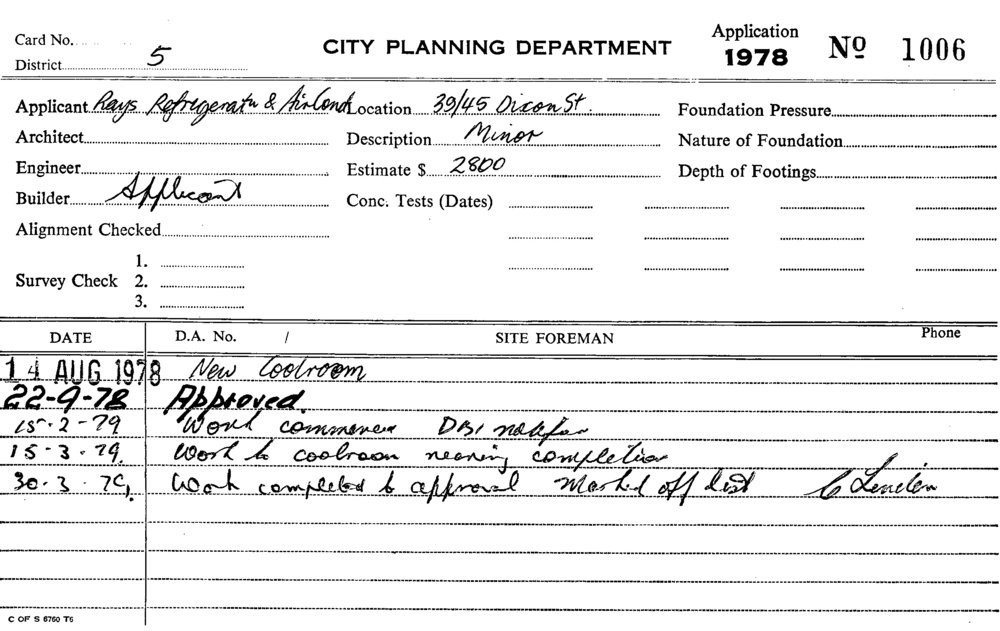 Card No.
District 5
CITY PLANNING DEPARTMENT
Application
1978 Nº 1006
Applicant Rays Refrigeratn & AirCond Location 39/45 Dixon St. Foundation Pressure
Architect Description Minor Nature of Foundation
Engineer Estimate $ 2800 Depth of Footings
Builder Applicant Conc. Tests (Dates)
Alignment Checked
1.
Survey Check 2.
3.
DATE D.A. No. / SITE FOREMAN Phone
14 AUG 1978 New Coolroom
22-9-78 Approved.
15-2-79 Work
15-3-79. Work to coolroom nearing completion
30.3.79. Work completed to approval Marked off list
C OF S 6760 T5